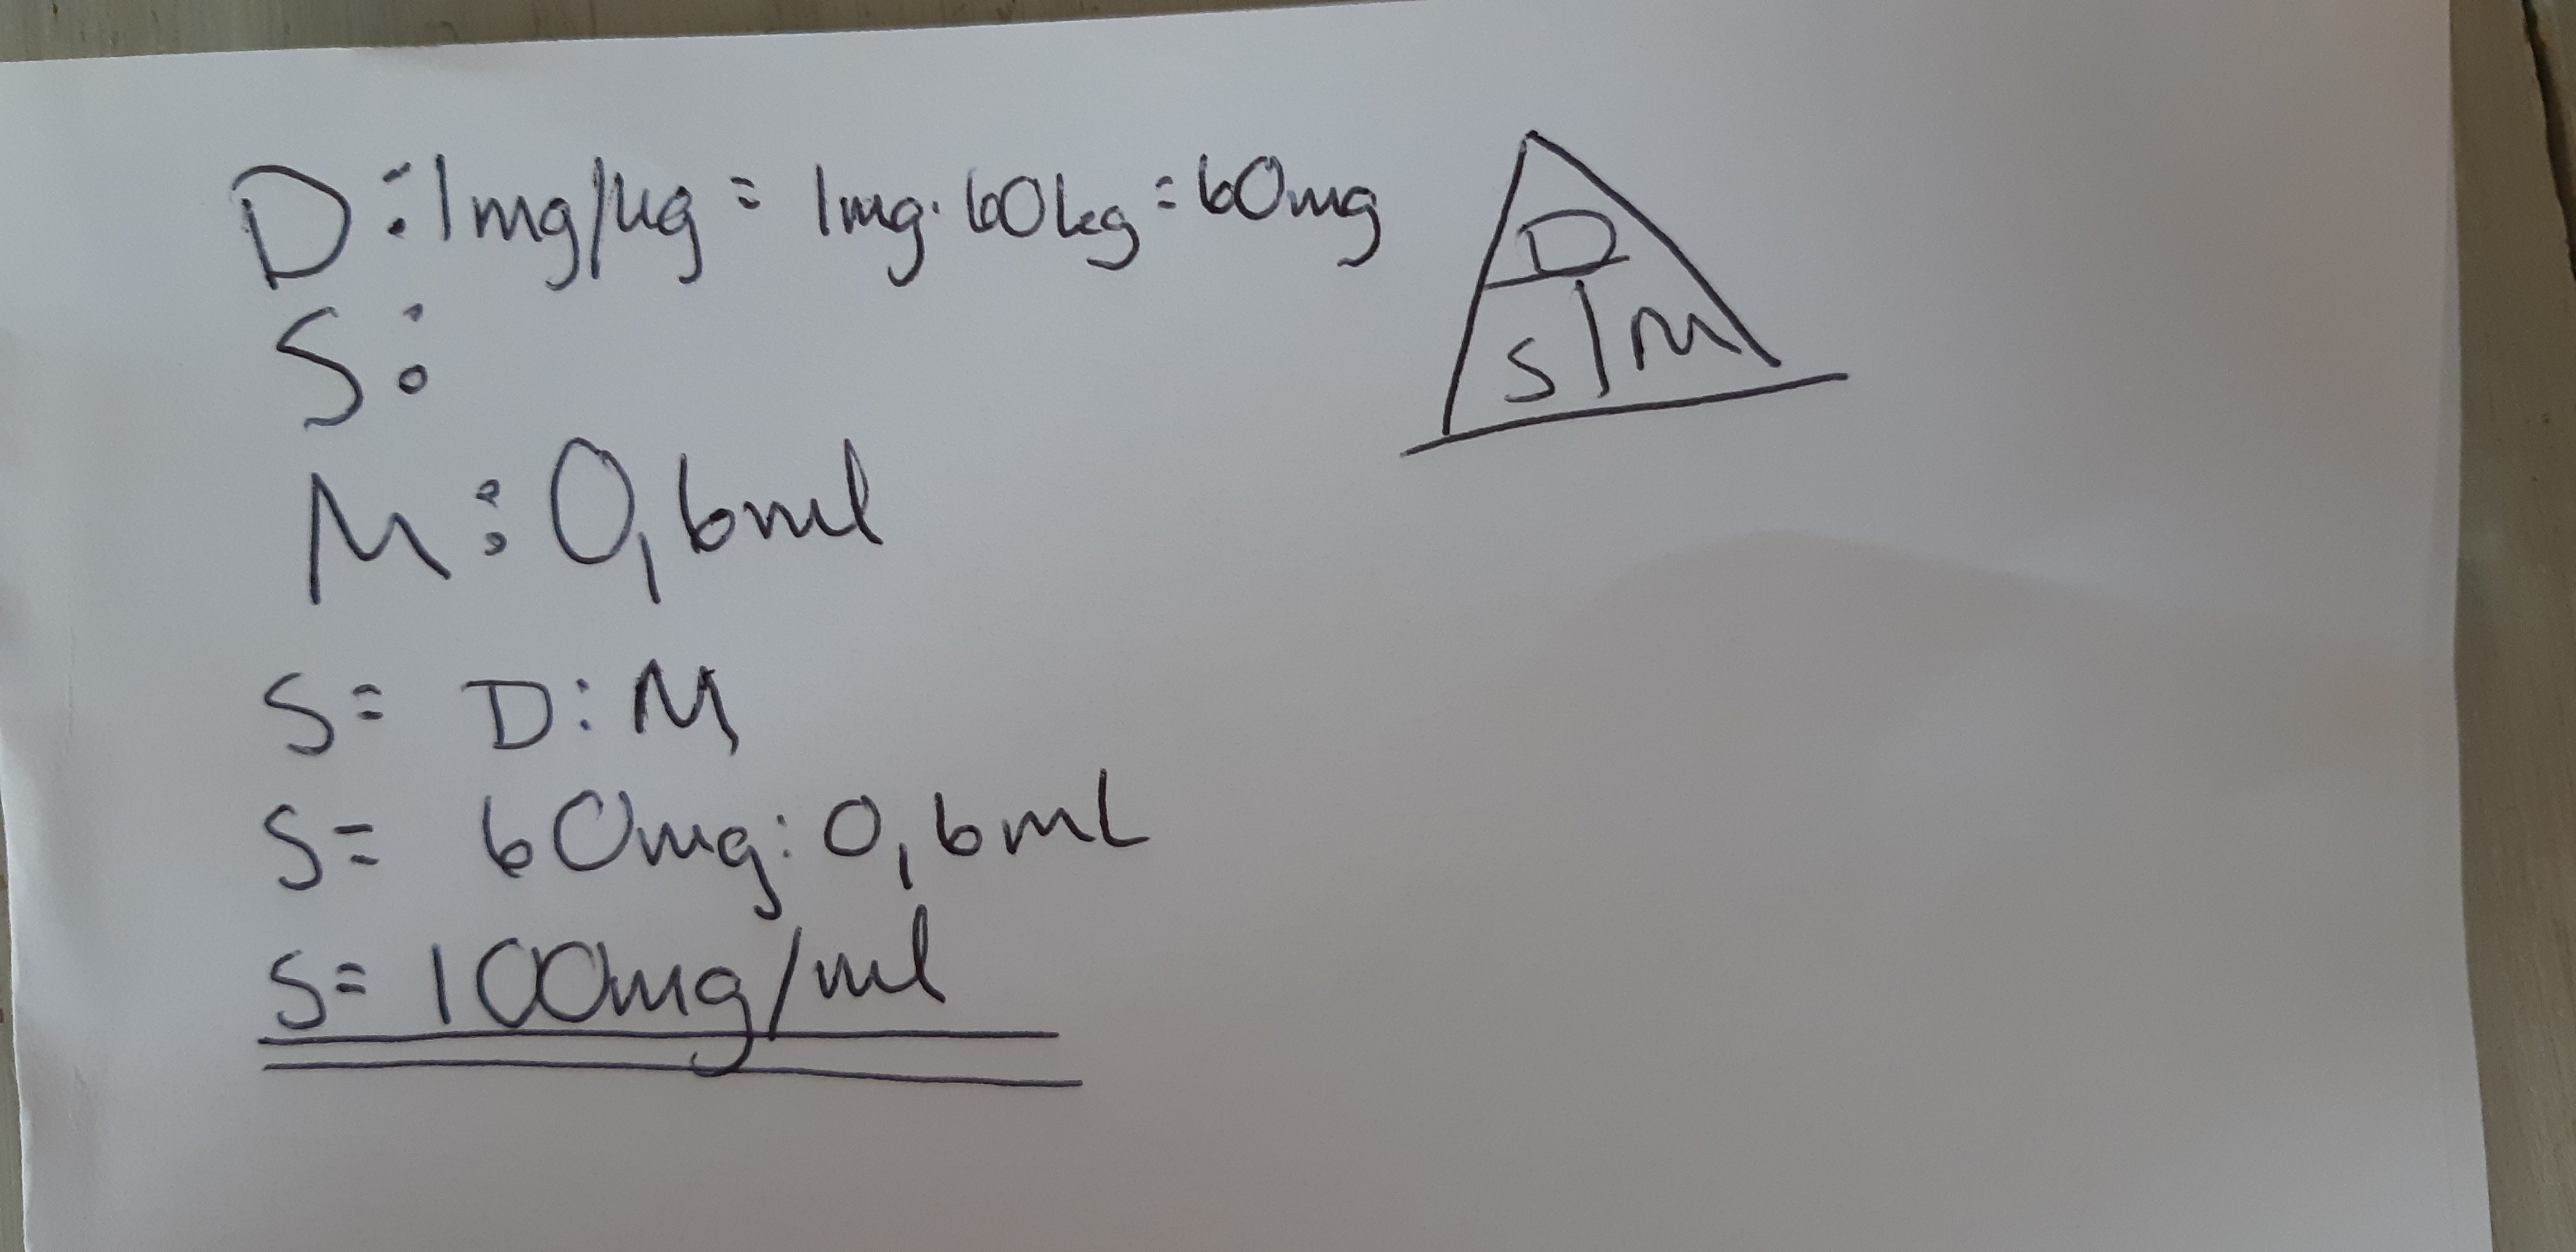 D: 1mg/kg = 1mg · 60kg = 60mg
S:
M: 0,6ml
D
S M
S= D:M
S= 60mg: 0,6ml
S= 100mg/ml